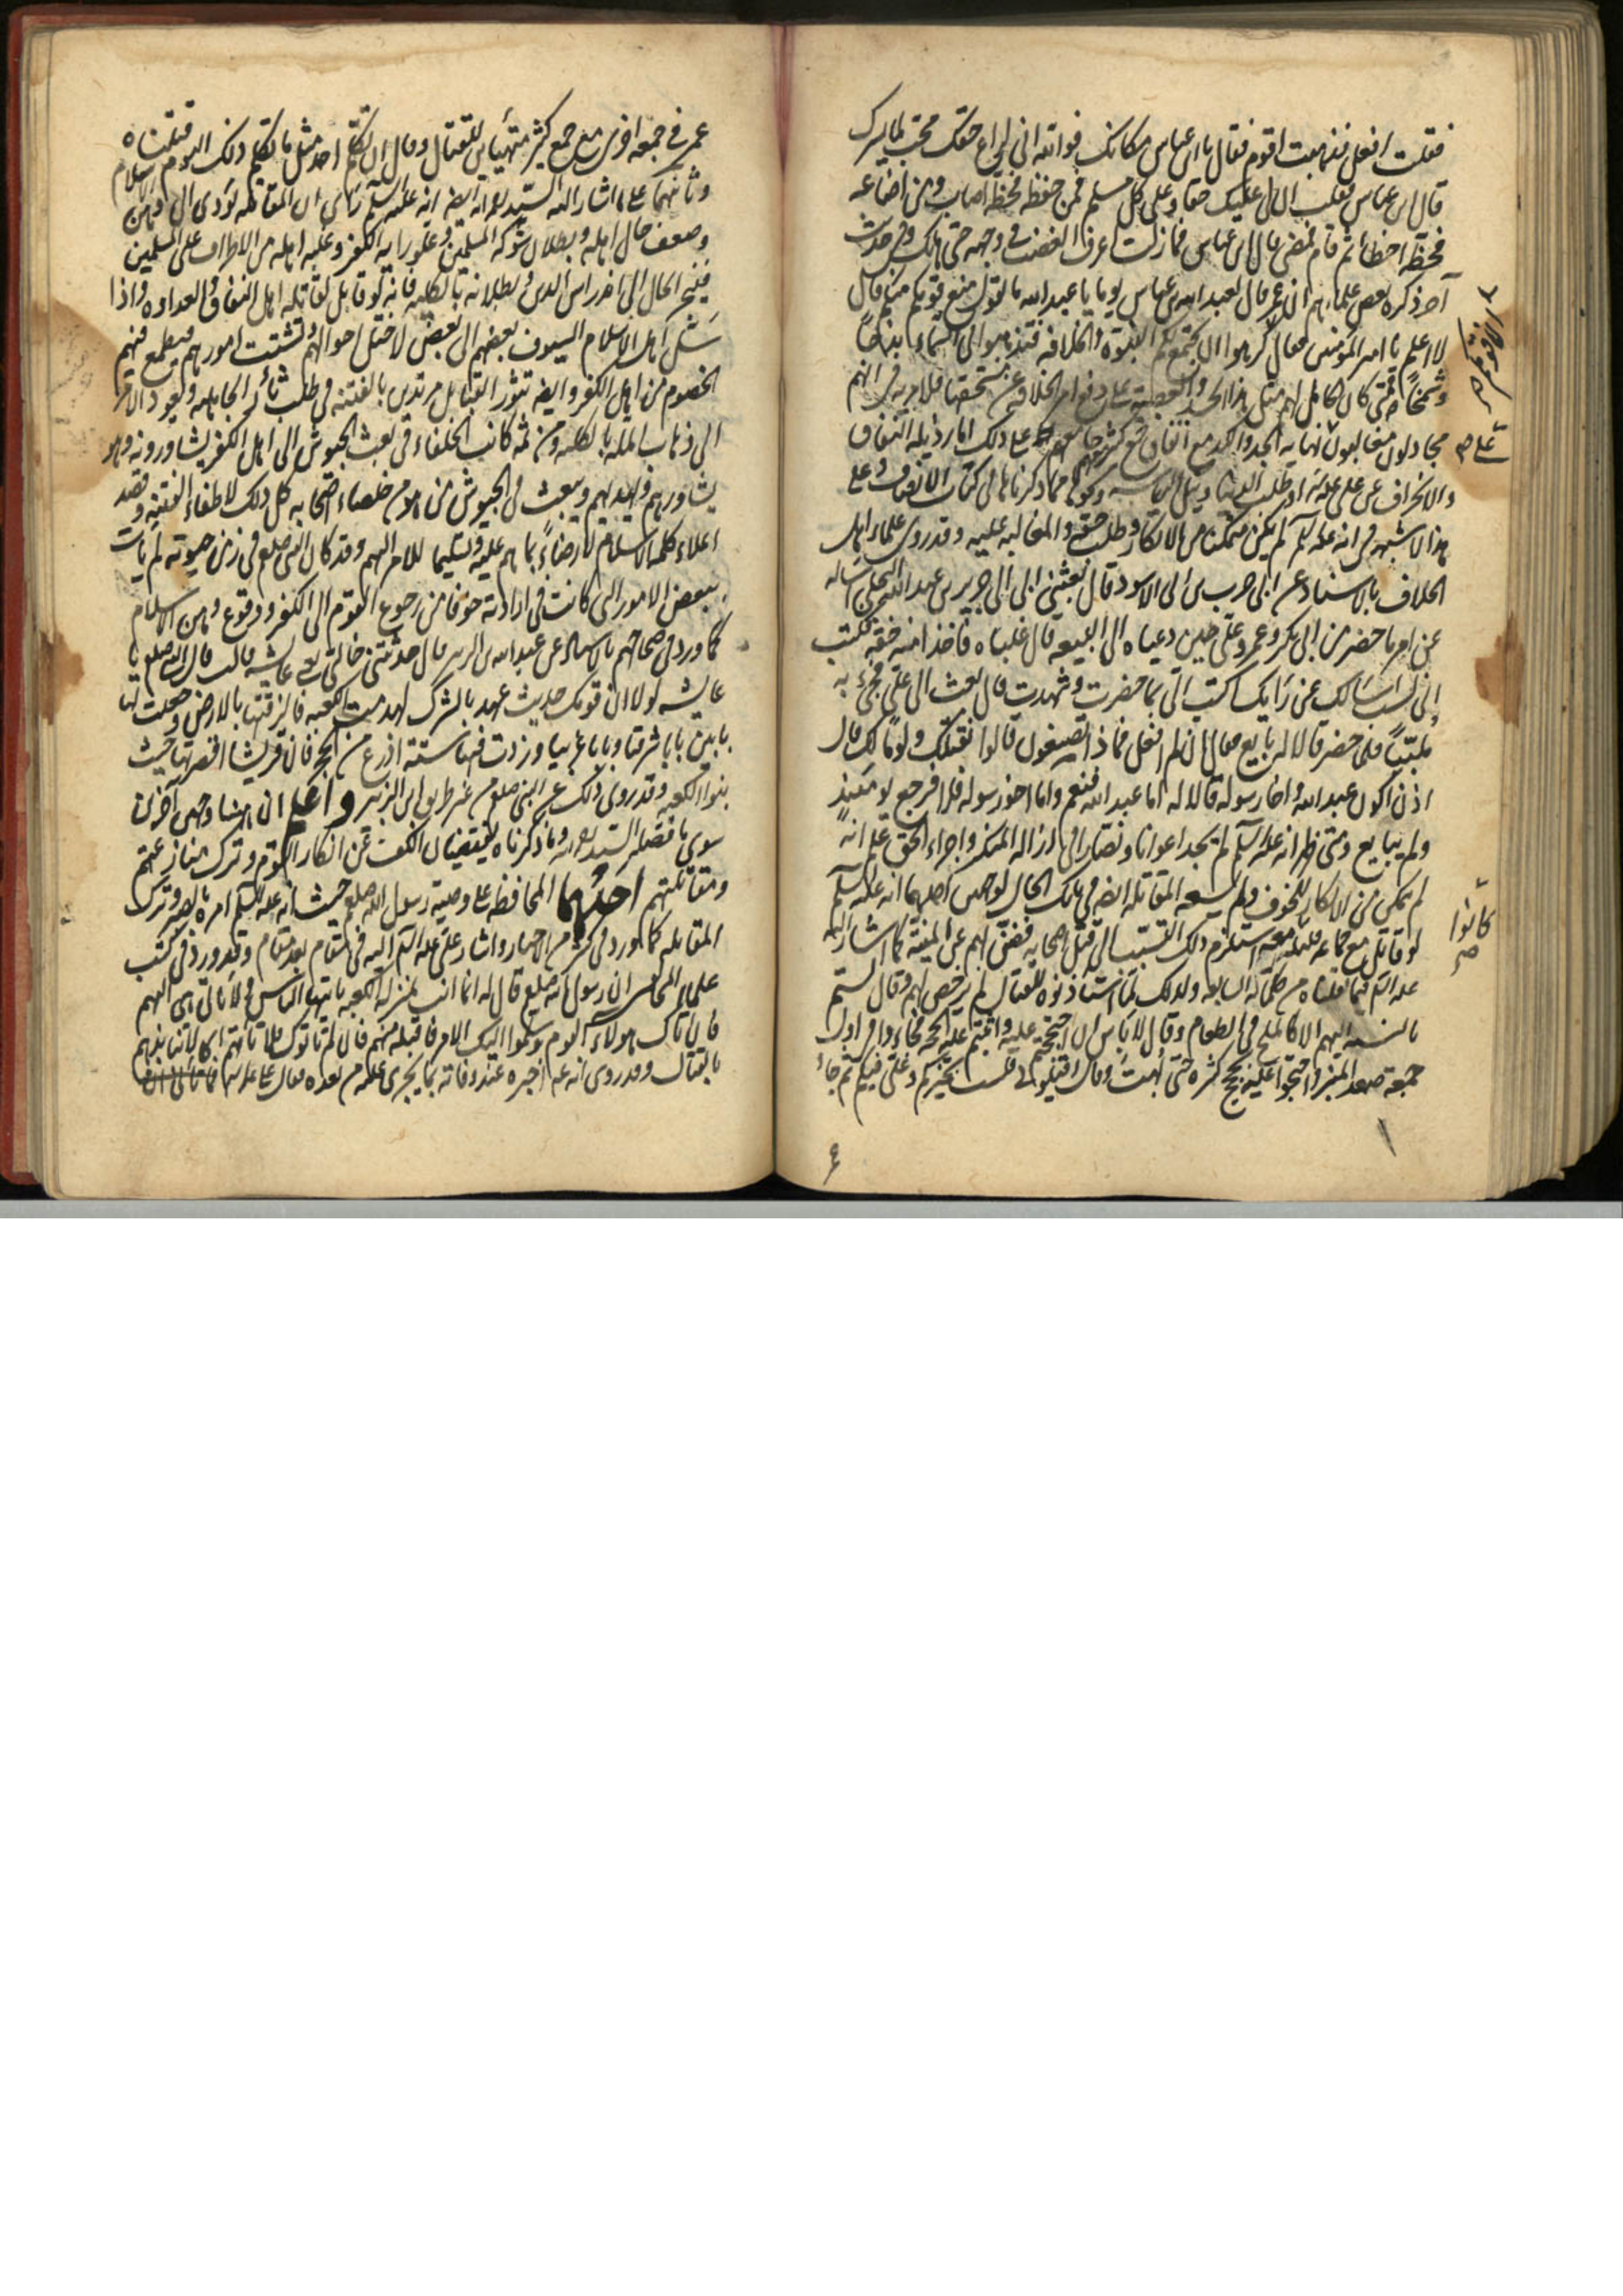 فقلت افعل فذهبت اقوم فقال يا ابن عباس مكانك فوالله اني لراع حقك محب لما يسرك
قال ابن عباس فقلت ان لي عليك حقا وعلى كل مسلم فمن حفظه فحظه اصاب ومن اضاعه
فحظه اخطأ ثم قام فمضى قال ابن عباس فما زلت اعرف الغضب في وجهه حتى هلك وفي حديث
آخر ذكره بعض علمائهم ان عمر قال لعبد الله بن عباس يوما يا عبد الله ما تقول منع قومكم منكم قال
لا اعلم يا امير المؤمنين فقال كرهوا ان تجتمع لكم النبوة والخلافة فتذهبوا الى السماء بذخا
وشمخا فمتى كان الحامل لهم مثل هذا الحسد على دفع امر الخلافة عن مستحقها فلا ريب في انهم
مجادلون مغالبون نهاية الجد والكد مع اتفاق جمع كثير معهم على ذلك لما رذيلة النفاق
والانحراف عن علي عليه
هذا لا شبهة في انه عليه السلم لم يكن متمكنا من الانكار وطلب حقه والمغالبة عليه وقد روى علماء اهل
الخلاف بالاسناد عن ابي حرب بن ابي الاسود قال بعثني ابي الى جرير بن عبد الله البجلي اساله
عن امر ما حضر من ابي بكر وعمر وعلي حين دعياه الى البيعة قال غلباه فاخذا منه حقه فكتب
اني لست اسالك عن رايك اكتب الي بما حضرت وشهدت قال بعث الى علي فجيء به
ملببا فلما حضر قالا له بايع فقال ان لم افعل فماذا تصنعون قالوا نقتلك ولوما لك قال
اذن اكون عبد الله واخا رسوله قالا له اما عبد الله فنعم واما اخو رسوله فلا فرجع يومئذ
ولم يبايع ومتى ظهر انه عليه السلم لم يجد اعوانا ونصارا في ازالة المنكر واجراء الحق علم انه
لم يمكن من الانكار للخوف ولم يسعه المقاتلة ايضا في تلك الحال لوجهين احدهما انه عليه السلم
لو قاتل مع جماعة قليلة معه استلزم ذلك التسبب الى قتل اصحابه فضن بهم عن المنية كما اشار اليه
عليه السلم فيما نقلناه من كلماته السابقة ولذلك لما استاذنوه للقتال لم يرخص لهم وقال لستم
بالنسبة اليهم الا كالملح في الطعام وقال لا باس ان احتججتم عليه واقمتم عليه الحجة فجاءوا في اول
جمعة صعد المنبر واحتجوا عليه بحجج كثيرة حتى بهت وقال اقيلوني فلست بخيركم وعلي فيكم ثم جاء
كانوا
صح
عمر في جمعة اخرى مع جمع كثير متهيأين للقتال وقال ان تكلم احد مثل ما تكلم ذلك اليوم قتلناه
وثانيهما على ما اشار اليه السيد رحمه الله ايضا انه عليه السلم راى ان المقاتلة تؤدي الى وهن الاسلام
وضعف حال اهله وبطلان شوكة المسلمين وعلو راية الكفر وغلبة اهله من الاطراف على المسلمين
فينجر الحال الى اندراس الدين وبطلانه بالكلية فانه لو قاتل لقاتله اهل النفاق والعداوة واذا
سل اهل الاسلام السيوف بعضهم الى بعض لاختل احوالهم وتشتت امورهم فيطمع فيهم
الخصوم من اهل الكفر وايضا تثور القبائل مرتدين بالفتنة في طلب ثأر الجاهلية ويعود الامر
الى ذهاب الملة بالكلية ومن ثم كانت الخلفاء في بعث الجيوش الى اهل الكفر يشاورونه وهو
يشاورهم ويهديهم ويبعث في الجيوش من هو من خلصاء اصحابه كل ذلك لاطفاء الفتنة وقصد
اعلاء كلمة الاسلام لا رضاءً بما هم عليه وتسليما للامر اليهم وقد كان النبي صلعم في زمن حيوته لم يات
ببعض الامور التي كانت في ارادته خوفا من رجوع القوم الى الكفر ووقوع وهن الاسلام
كما ورد في صحاحهم بالاسناد عن عبد الله بن الزبير قال حدثتني خالتي يعني عايشة قالت قال النبي صلعم يا
عايشة لولا ان قومك حديث عهد بالشرك لهدمت الكعبة فالزقتها بالارض وجعلت لها
بابين بابا شرقيا وبابا غربيا وزدت فيها ستة اذرع من الحجر فان قريشا اقتصرتها حيث
بنوا الكعبة وقد روي ذلك عن النبي صلعم من غير طريق ابن الزبير واعلم ان ههنا وجهين آخرين
سوى ما فصله السيد رحمه الله وما ذكرناه يقتضيان الكف عن انكار القوم وترك منازعتهم
ومقاتلتهم احدهما المحافظة على وصية رسول الله صلعم حيث انه عليه السلم امره بالصبر وترك
المقاتلة كما ورد في كثير من الاخبار واشار علي عليه السلم اليه في مقام بعد مقام وقد ورد في كتب
علماء المخالفين ان رسول الله صلعم قال له انما انت بمنزلة الكعبة ياتيها الناس ولا تاتي هي اليهم
فان اتاك هولاء القوم وسلموا اليك الامر فاقبله منهم فان لم ياتوك فلا تاتهم
بالقتال وقد روي انه اخبره عند وفاته بما يجري عليه من بعده فقال علي عليه السلم